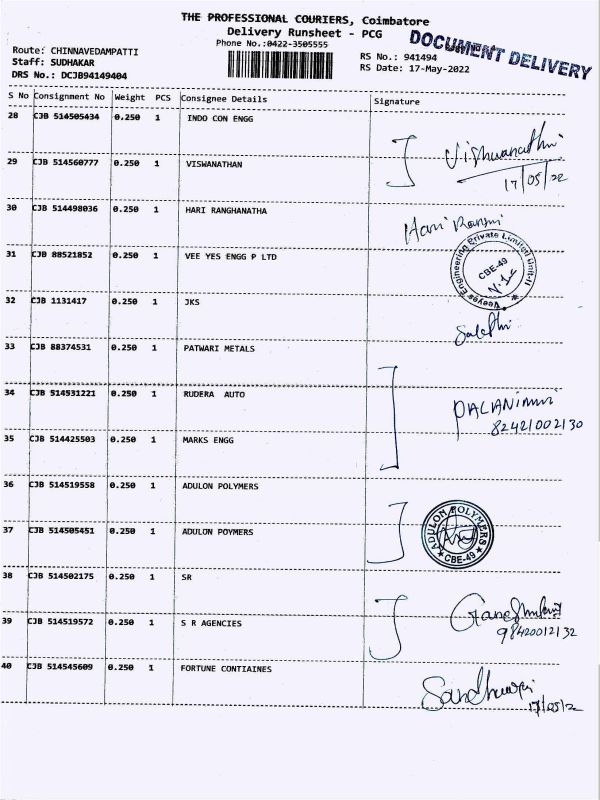 THE PROFESSIONAL COURIERS, Coimbatore
Delivery Runsheet - PCG
Phone No.:0422-3505555
DOCUMENT DELIVERY
Route: CHINNAVEDAMPATTI
Staff: SUDHAKAR
DRS No.: DCJB94149404
RS No.: 941494
RS Date: 17-May-2022
S No Consignment No Weight PCS Consignee Details Signature
28 CJB 514505434 0.250 1 INDO CON ENGG
Vishwanathi
17/05/22
29 CJB 514560777 0.250 1 VISWANATHAN
30 CJB 514498036 0.250 1 HARI RANGHANATHA
Hari
31 CJB 88521852 0.250 1 VEE YES ENGG P LTD
Veeyes Engineering Private Limited Unit-II
CBE-49
32 CJB 1131417 0.250 1 JKS
33 CJB 88374531 0.250 1 PATWARI METALS
34 CJB 514531221 0.250 1 RUDERA AUTO
82421002130
35 CJB 514425503 0.250 1 MARKS ENGG
36 CJB 514519558 0.250 1 ADULON POLYMERS
ADULON POLYMERS
CBE-49
37 CJB 514505451 0.250 1 ADULON POYMERS
38 CJB 514502175 0.250 1 SR
39 CJB 514519572 0.250 1 S R AGENCIES
98420012132
40 CJB 514545609 0.250 1 FORTUNE CONTIAINES
17/05/22